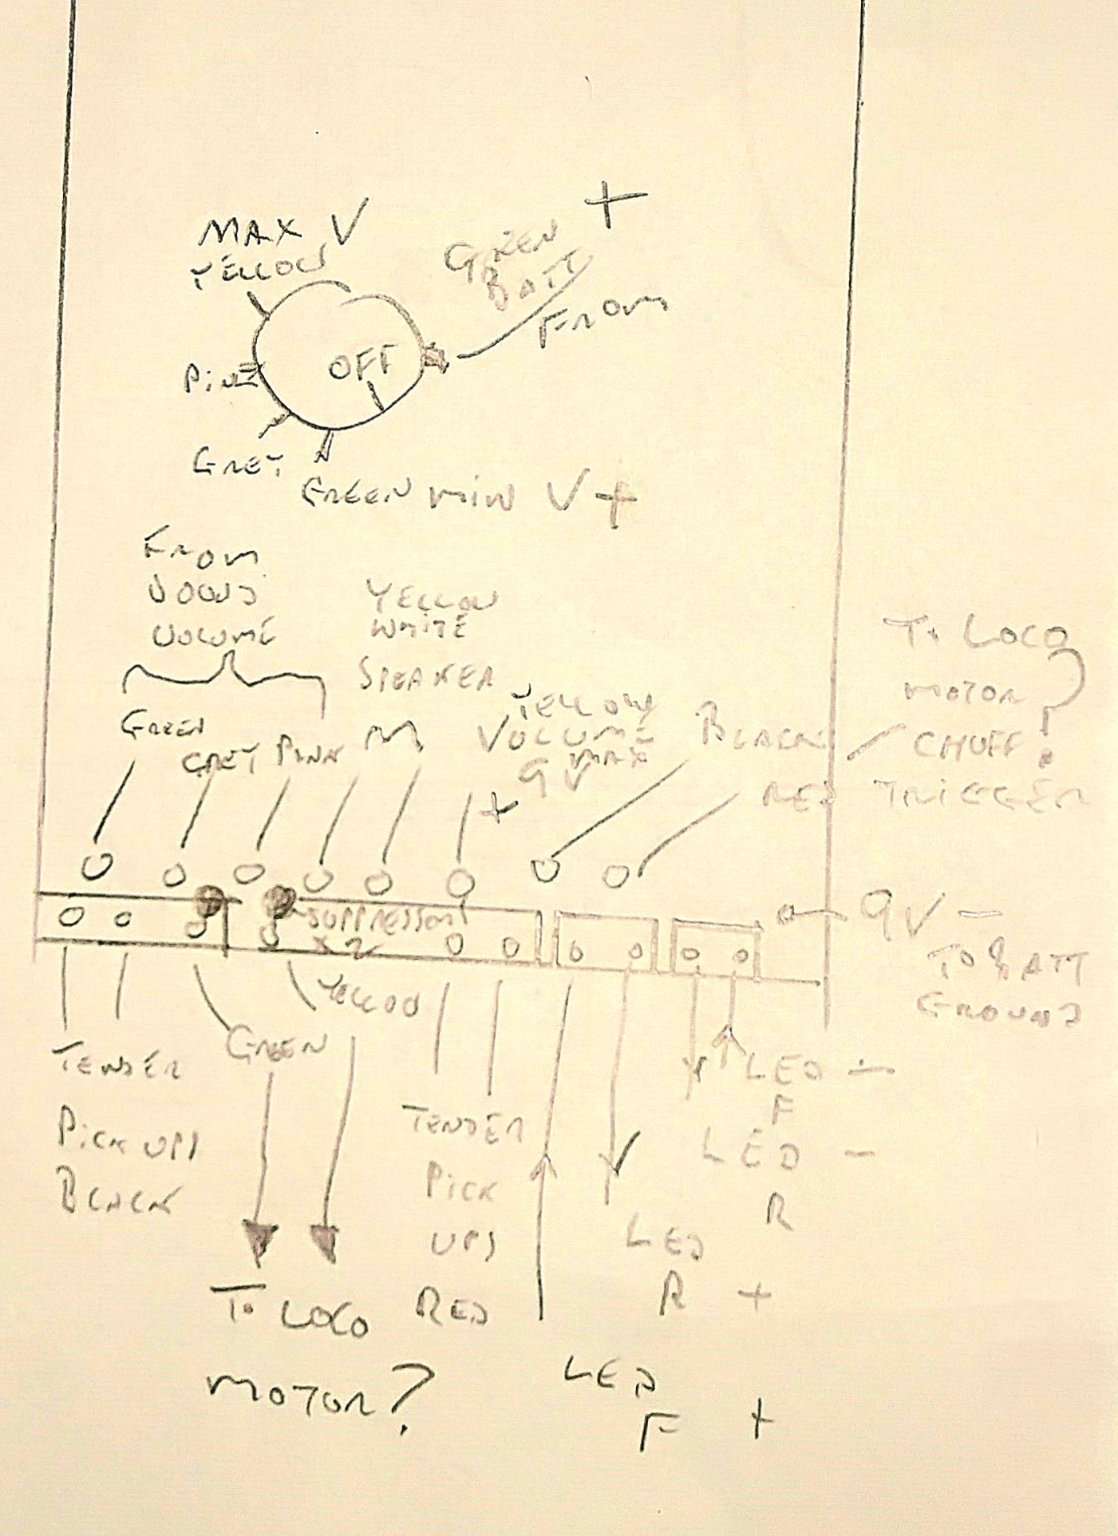 MAX V
YELLOW
+
GREEN
BATT
FROM
PINK
OFF
GREY
GREEN MIN V +
FROM
VOLUME
YELLOW
WHITE
SPEAKER
GREEN
GREY PINK
YELLOW
VOLUME
MAX
9V
+
BLACK /
RED
TO LOCO
MOTOR ?
CHUFF
TRIGGER
SUPPRESSOR
X2
9V -
TO BATT
GROUND
YELLOW
GREEN
TENDER
PICK UPS
BLACK
TENDER
PICK
UPS
RED
LED -
F
LED -
R
LED
R +
TO LOCO
MOTOR?
LED
F +